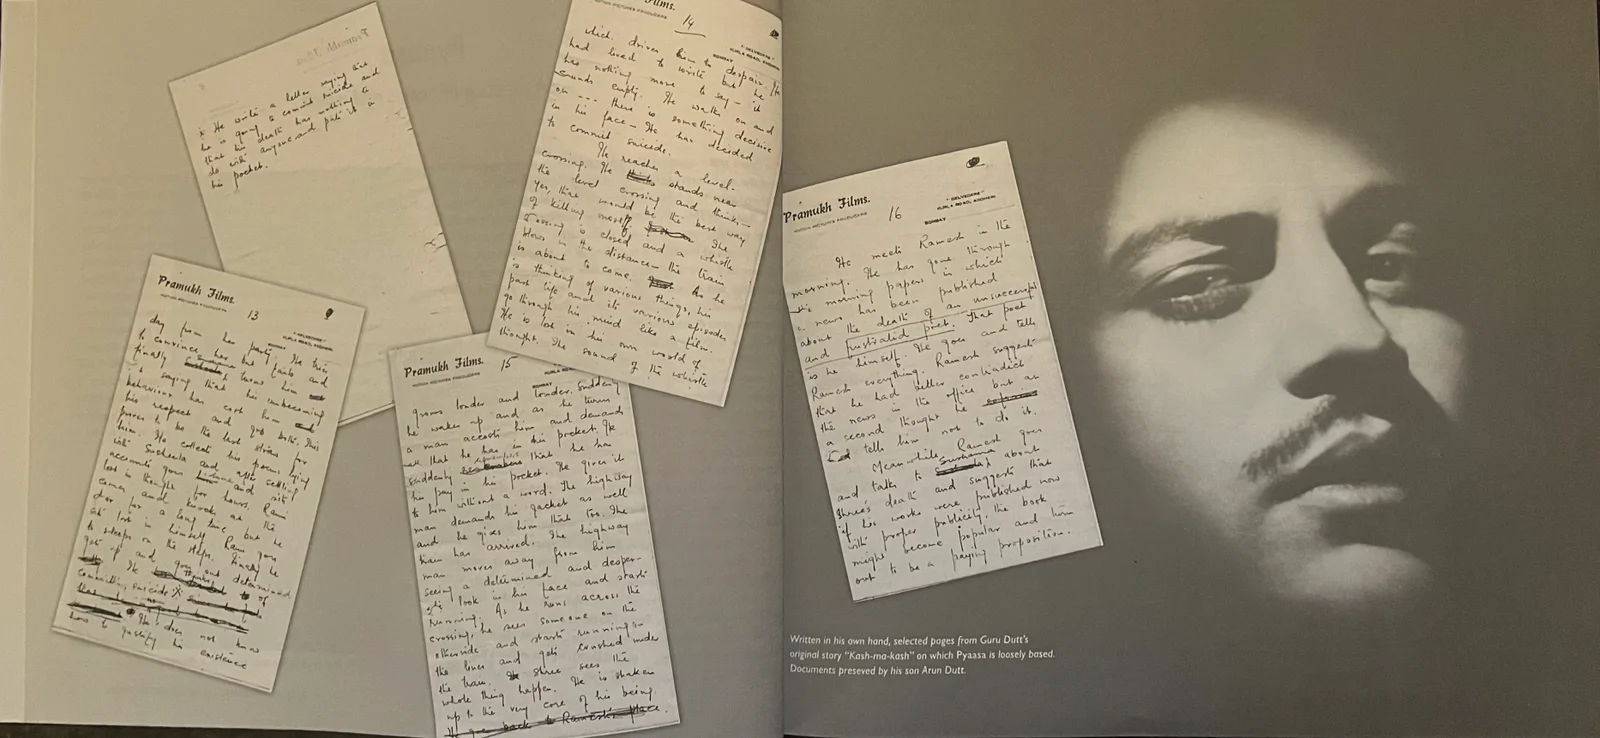 x He write a letter saying that
he is going to commit suicide and
that his death has nothing to
do with anyone and puts it in
his pocket.
Pramukh Films.
MOTION PICTURES PRODUCERS
13
"BELVEDERE"
KURLA ROAD, ANDHERI
BOMBAY
day from her party. He tries
to convince her but fails and
finally Sushama turns him
saying that his unbecoming
behaviour has cost him
his respect and job both. This
proves to be the last straw for
him. He collects his poems lying
with Susheela and after settling
accounts goes home and sits
lost in thought for hours. Rami
comes and knocks at the
door for a long time but he
sits lost in himself. Rami goes
to sleep on the steps. Finally he
gets up and goes out determined
He of
committing suicide X
He does not know
how to justify his existence
Films.
MOTION PICTURES PRODUCERS
14
"BELVEDERE"
KURLA ROAD, ANDHERI
BOMBAY
which drives him to despair. He
had loved to write but he
has nothing more to say - it
sounds empty. He walks on and
on --- there is something decisive
in his face - He has decided
to commit suicide.
He reaches a level-
crossing. He stands near
the level crossing and thinks -
Yes, that would be the best way
of killing myself. The
crossing is closed and a whistle
blows in the distance - the train
is about to come. As he
is thinking of various things, his
past life and its various episodes
go through his mind like a film.
He is lost in his own world of
thought. The sound of the whistle
Pramukh Films.
MOTION PICTURES PRODUCERS
15
BOMBAY
grows louder and louder. Suddenly
he wakes up and as he turns
a man accosts him and demands
all that he has in his pocket. He
suddenly remembers that he has
his pay in his pocket. He gives it
to him without a word. The highway
man demands his jacket as well
and he gives him that too. The
train has arrived. The highway
man moves away from him
seeing a determined and desper-
ate look in his face and starts
running. As he runs across the
crossing, he sees someone on the
otherside and starts running on
the lines and gets crushed under
the train. Shree sees the
whole thing happen. He is shaken
up to the very core of his being.
He goes back to Ramesh's place.
Pramukh Films.
MOTION PICTURES PRODUCERS
16
"BELVEDERE"
KURLA ROAD, ANDHERI
BOMBAY
He meets Ramesh in the
morning. He has gone through
the morning papers in which
a news has been published
about the death of an unsuccessful
and frustrated poet. That poet
is he himself. He goes and tells
Ramesh everything. Ramesh suggest
that he had better contradict
the news in the office but as
a second thought he
tells him not to do it.
Meanwhile, Ramesh goes
and talks to Sushama about
Shree's death and suggests that
if his works were published now
with proper publicity, the book
might become popular and turn
out to be a paying proposition.
Written in his own hand, selected pages from Guru Dutt's
original story "Kash-ma-kash" on which Pyaasa is loosely based.
Documents preseved by his son Arun Dutt.